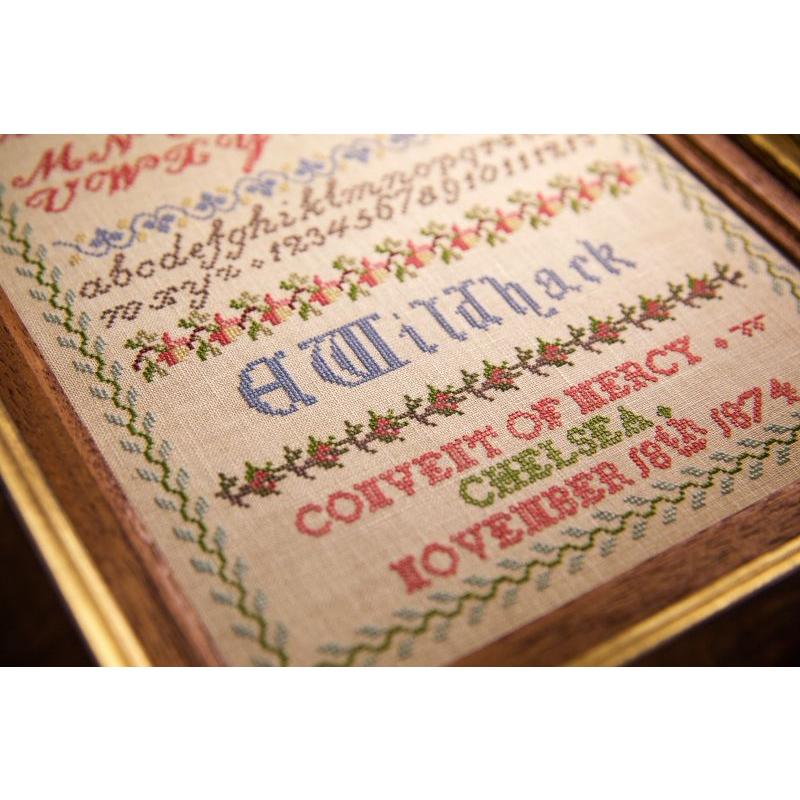 M N
U W X Y
abcdefghiklmnopqrs
wxyz 123456789101112
A Wildhack
CONVENT OF MERCY
CHELSEA
NOVEMBER 18th 1874